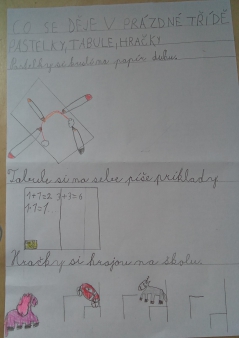 CO SE DĚJE V PRÁZDNÉ TŘÍDĚ
PASTELKY, TABULE, HRAČKI
Pastelky se
papír
Tabule si na sebe píše příklady
1+1=2 3+3=6
1+1=1
Hračky si hrajou na školu